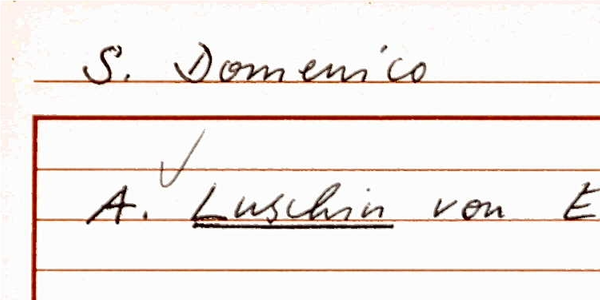 S. Domenico
A. Luschin von E